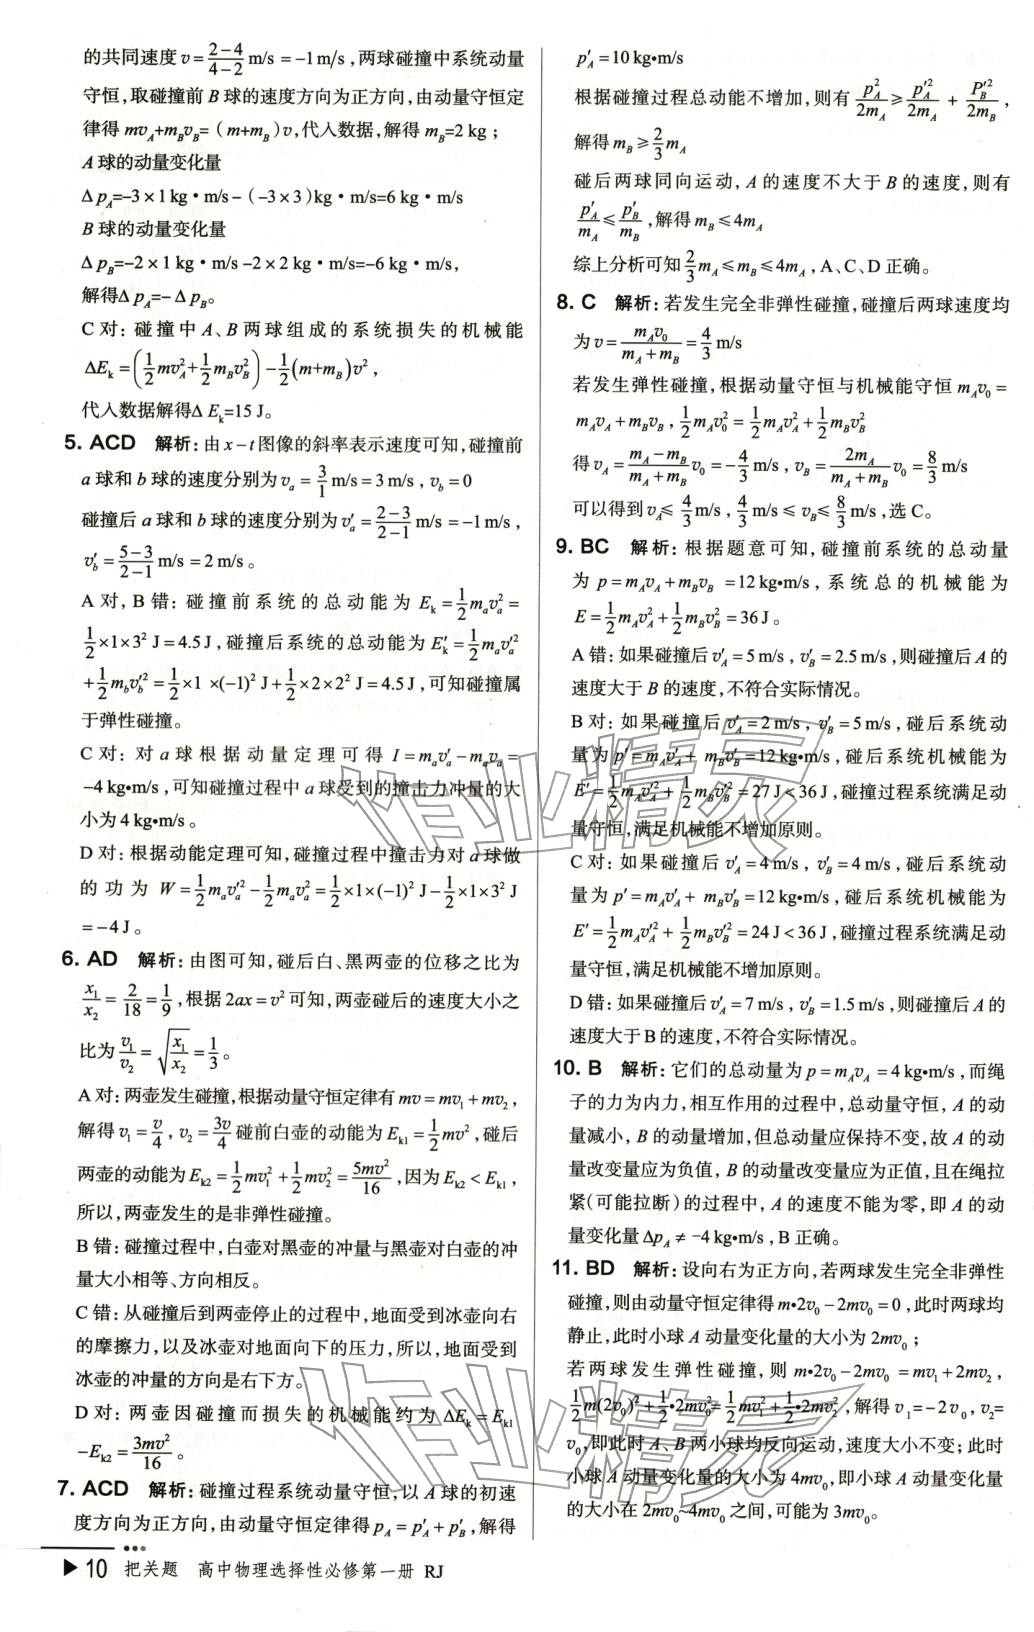 的共同速度 v=\frac{2-4}{4-2} m/s =-1 m/s,两球碰撞中系统动量
守恒,取碰撞前 B 球的速度方向为正方向,由动量守恒定
律得 mv_A+m_Bv_B=(m+m_B)v,代入数据,解得 m_B=2 kg;
A 球的动量变化量
Δp_A=-3×1 kg·m/s-(-3×3)kg·m/s=6 kg·m/s
B 球的动量变化量
Δp_B=-2×1 kg·m/s-2×2 kg·m/s=-6 kg·m/s,
解得Δp_A=-Δp_B。
C 对:碰撞中 A、B 两球组成的系统损失的机械能
ΔE_k=(\frac{1}{2}mv_A^2+\frac{1}{2}m_Bv_B^2)-\frac{1}{2}(m+m_B)v^2,
代入数据解得Δ E_k=15 J。
5. ACD 解析:由 x-t 图像的斜率表示速度可知,碰撞前
a 球和 b 球的速度分别为 v_a=\frac{3}{1} m/s=3 m/s,v_b=0
碰撞后 a 球和 b 球的速度分别为 v'_a=\frac{2-3}{2-1} m/s=-1 m/s,
v'_b=\frac{5-3}{2-1} m/s=2 m/s。
A 对,B 错:碰撞前系统的总动能为 E_k=\frac{1}{2}m_av_a^2=
\frac{1}{2}×1×3^2 J=4.5 J,碰撞后系统的总动能为 E'_k=\frac{1}{2}m_av'^2_a
+\frac{1}{2}m_bv'^2_b=\frac{1}{2}×1×(-1)^2 J+\frac{1}{2}×2×2^2 J=4.5 J,可知碰撞属
于弹性碰撞。
C 对:对 a 球根据动量定理可得 I=m_av'_a-m_av_a=
-4 kg•m/s,可知碰撞过程中 a 球受到的撞击力冲量的大
小为 4 kg•m/s。
D 对:根据动能定理可知,碰撞过程中撞击力对 a 球做
的功为 W=\frac{1}{2}m_av'^2_a-\frac{1}{2}m_av_a^2=\frac{1}{2}×1×(-1)^2 J-\frac{1}{2}×1×3^2 J
=-4 J。
6. AD 解析:由图可知,碰后白、黑两壶的位移之比为
\frac{x_1}{x_2}=\frac{2}{18}=\frac{1}{9},根据 2ax=v^2 可知,两壶碰后的速度大小之
比为\frac{v_1}{v_2}=\sqrt{\frac{x_1}{x_2}}=\frac{1}{3}。
A 对:两壶发生碰撞,根据动量守恒定律有 mv=mv_1+mv_2,
解得 v_1=\frac{v}{4},v_2=\frac{3v}{4} 碰前白壶的动能为 E_{k1}=\frac{1}{2}mv^2,碰后
两壶的动能为 E_{k2}=\frac{1}{2}mv_1^2+\frac{1}{2}mv_2^2=\frac{5mv^2}{16},因为 E_{k2}<E_{k1},
所以,两壶发生的是非弹性碰撞。
B 错:碰撞过程中,白壶对黑壶的冲量与黑壶对白壶的冲
量大小相等、方向相反。
C 错:从碰撞后到两壶停止的过程中,地面受到冰壶向右
的摩擦力,以及冰壶对地面向下的压力,所以,地面受到
冰壶的冲量的方向是右下方。
D 对:两壶因碰撞而损失的机械能约为 ΔE_k=E_{k1}
-E_{k2}=\frac{3mv^2}{16}。
7. ACD 解析:碰撞过程系统动量守恒,以 A 球的初速
度方向为正方向,由动量守恒定律得 p_A=p'_A+p'_B,解得
p'_A=10 kg•m/s
根据碰撞过程总动能不增加,则有\frac{p_A^2}{2m_A}≥\frac{p'^2_A}{2m_A}+\frac{p'^2_B}{2m_B},
解得 m_B≥\frac{2}{3}m_A
碰后两球同向运动,A 的速度不大于 B 的速度,则有
\frac{p'_A}{m_A}≤\frac{p'_B}{m_B},解得 m_B≤4m_A
综上分析可知\frac{2}{3}m_A≤m_B≤4m_A,A、C、D 正确。
8. C 解析:若发生完全非弹性碰撞,碰撞后两球速度均
为 v=\frac{m_Av_0}{m_A+m_B}=\frac{4}{3} m/s
若发生弹性碰撞,根据动量守恒与机械能守恒 m_Av_0=
m_Av_A+m_Bv_B,\frac{1}{2}m_Av_0^2=\frac{1}{2}m_Av_A^2+\frac{1}{2}m_Bv_B^2
得 v_A=\frac{m_A-m_B}{m_A+m_B}v_0=-\frac{4}{3} m/s,v_B=\frac{2m_A}{m_A+m_B}v_0=\frac{8}{3} m/s
可以得到 v_A≤\frac{4}{3} m/s,\frac{4}{3} m/s≤v_B≤\frac{8}{3} m/s,选 C。
9. BC 解析:根据题意可知,碰撞前系统的总动量
为 p=m_Av_A+m_Bv_B=12 kg•m/s,系统总的机械能为
E=\frac{1}{2}m_Av_A^2+\frac{1}{2}m_Bv_B^2=36 J。
A 错:如果碰撞后 v'_A=5 m/s,v'_B=2.5 m/s,则碰撞后 A 的
速度大于 B 的速度,不符合实际情况。
B 对:如果碰撞后 v'_A=2 m/s,v'_B=5 m/s,碰后系统动
量为 p'=m_Av'_A+m_Bv'_B=12 kg•m/s,碰后系统机械能为
E'=\frac{1}{2}m_Av'^2_A+\frac{1}{2}m_Bv'^2_B=27 J<36 J,碰撞过程系统满足动
量守恒,满足机械能不增加原则。
C 对:如果碰撞后 v'_A=4 m/s,v'_B=4 m/s,碰后系统动
量为 p'=m_Av'_A+m_Bv'_B=12 kg•m/s,碰后系统机械能为
E'=\frac{1}{2}m_Av'^2_A+\frac{1}{2}m_Bv'^2_B=24 J<36 J,碰撞过程系统满足动
量守恒,满足机械能不增加原则。
D 错:如果碰撞后 v'_A=7 m/s,v'_B=1.5 m/s,则碰撞后 A 的
速度大于 B 的速度,不符合实际情况。
10. B 解析:它们的总动量为 p=m_Av_A=4 kg•m/s,而绳
子的力为内力,相互作用的过程中,总动量守恒,A 的动
量减小,B 的动量增加,但总动量应保持不变,故 A 的动
量改变量应为负值,B 的动量改变量应为正值,且在绳拉
紧(可能拉断)的过程中,A 的速度不能为零,即 A 的动
量变化量 Δp_A≠-4 kg•m/s,B 正确。
11. BD 解析:设向右为正方向,若两球发生完全非弹性
碰撞,则由动量守恒定律得 m•2v_0-2mv_0=0,此时两球均
静止,此时小球 A 动量变化量的大小为 2mv_0;
若两球发生弹性碰撞,则 m•2v_0-2mv_0=mv_1+2mv_2,
\frac{1}{2}m(2v_0)^2+\frac{1}{2}•2mv_0^2=\frac{1}{2}mv_1^2+\frac{1}{2}•2mv_2^2,解得 v_1=-2v_0,v_2=
v_0,即此时 A、B 两小球均反向运动,速度大小不变;此时
小球 A 动量变化量的大小为 4mv_0,即小球 A 动量变化量
的大小在 2mv_0~4mv_0 之间,可能为 3mv_0。
▶10 把关题 高中物理选择性必修第一册 RJ
作业精灵
作业精灵